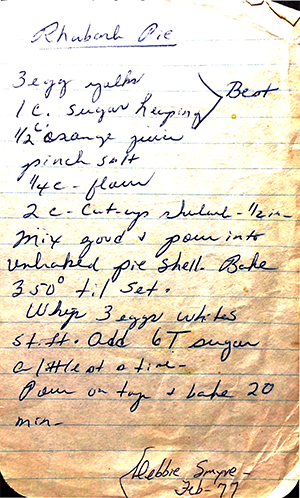 Rhubarb Pie
3 egg yolks
1 c. sugar heaping } Beat
1/2 c. orange juice
pinch salt
1/4 c - flour
2 c - cut-up rhubarb - 1/2 in -
Mix good & pour into
unbaked pie shell. Bake
350° til set.
Whip 3 eggs whites
stiff. Add 6 T sugar
a little at a time -
Pour on top & bake 20
min -
Debbie Smyre -
Feb - 77